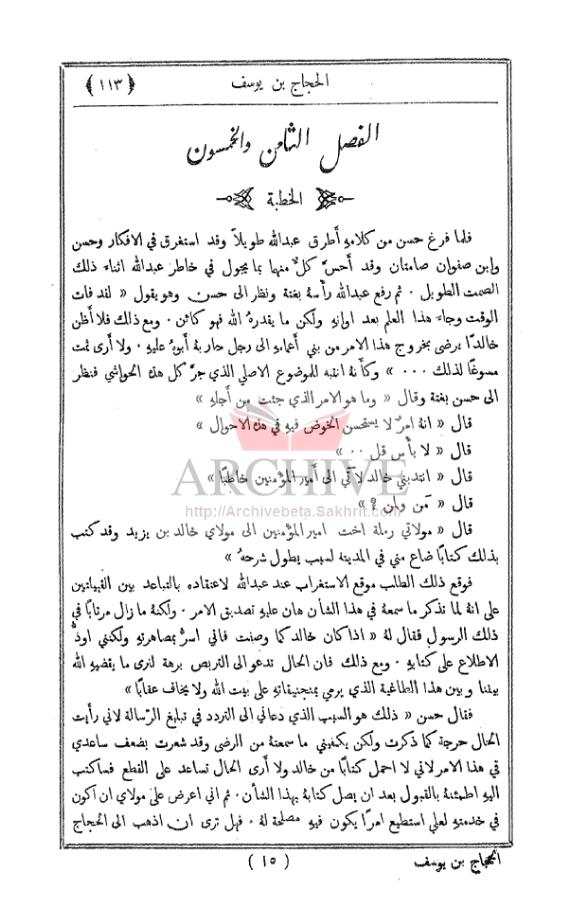 الحجاج بن يوسف
﴿ ١١٣ ﴾
الفصل الثامن والخمسون
الخطبة
فلما فرغ حسن من كلامهِ أطرق عبدالله طويلاً وقد استغرق في الافكار وحسن
وابن صفوان صامتان وقد أحسَّ كلٌ منها بما يجول في خاطر عبدالله اثناء ذلك
الصمت الطويل ٠ ثم رفع عبدالله رأسهُ بغتة ونظر الى حسن وهو يقول « لقد فات
الوقت وجاء هذا العلم بعد اوانهِ ولكن ما يقدرهُ الله فهو كائن ٠ ومع ذلك فلا أظن
خالدًا يرضى بخروج هذا الامر من بني أعمامهِ الى رجل حاربهُ أبوهُ عليهِ ٠ ولا أرى ثمت
مسوغًا لذلك ٠٠٠ » وكأنهُ انتبه للموضوع الاصلي الذي جرَّ كل هذه الحواشي فنظر
الى حسن بغتة وقال « وما هو الامر الذي جئت من أجلهِ »
قال « انهُ امرٌ لا يستحسن الخوض فيهِ في هذه الاحوال »
قال « لا بأس قل ٠٠ »
قال « انتدبني خالد لآتي الى أمير المؤمنين خاطبًا »
قال « مَن ولمن ? »
ARCHIVE
http://Archivebeta.Sakhrit.com
قال « مولاتي رملة اخت امير المؤمنين الى مولاي خالد بن يزيد وقد كتب
بذلك كتابًا ضاع مني في المدينة لسبب يطول شرحهُ »
فوقع ذلك الطلب موقع الاستغراب عند عبدالله لاعتقاده بالتباعد بين القبيلتين
على انهُ لما تذكر ما سمعهُ في هذا الشأن هان عليهِ تصديق الامر ٠ ولكنهُ ما زال مرتابًا في
ذلك الرسول فقال لهُ « اذا كان خالد كما وصفت فاني اسرُّ بمصاهرتهِ ولكنني اودُّ
الاطلاع على كتابهِ ٠ ومع ذلك فان الحال تدعو الى التربص برهة لنرى ما يقضيهِ الله
بيننا وبين هذا الطاغية الذي يرمي بمنجنيقاتهِ على بيت الله ولا يخاف عقابًا »
فقال حسن « ذلك هو السبب الذي دعاني الى التردد في تبليغ الرسالة لاني رأيت
الحال حرجة كما ذكرت ولكن يكفيني ما سمعتهُ من الرضى وقد شعرت بضعف ساعدي
في هذا الامر لاني لا احمل كتابًا من خالد ولا أرى الحال تساعد على القطع فساكتب
اليهِ اطمئنهُ بالقبول بعد ان يصل كتابهُ بهذا الشأن ٠ ثم اني اعرض على مولاي ان اكون
في خدمتهِ لعلي استطيع امرًا يكون فيهِ مصلحة لهُ ٠ فهل ترى ان اذهب الى الحجاج
الحجاج بن يوسف
( ١٥ )